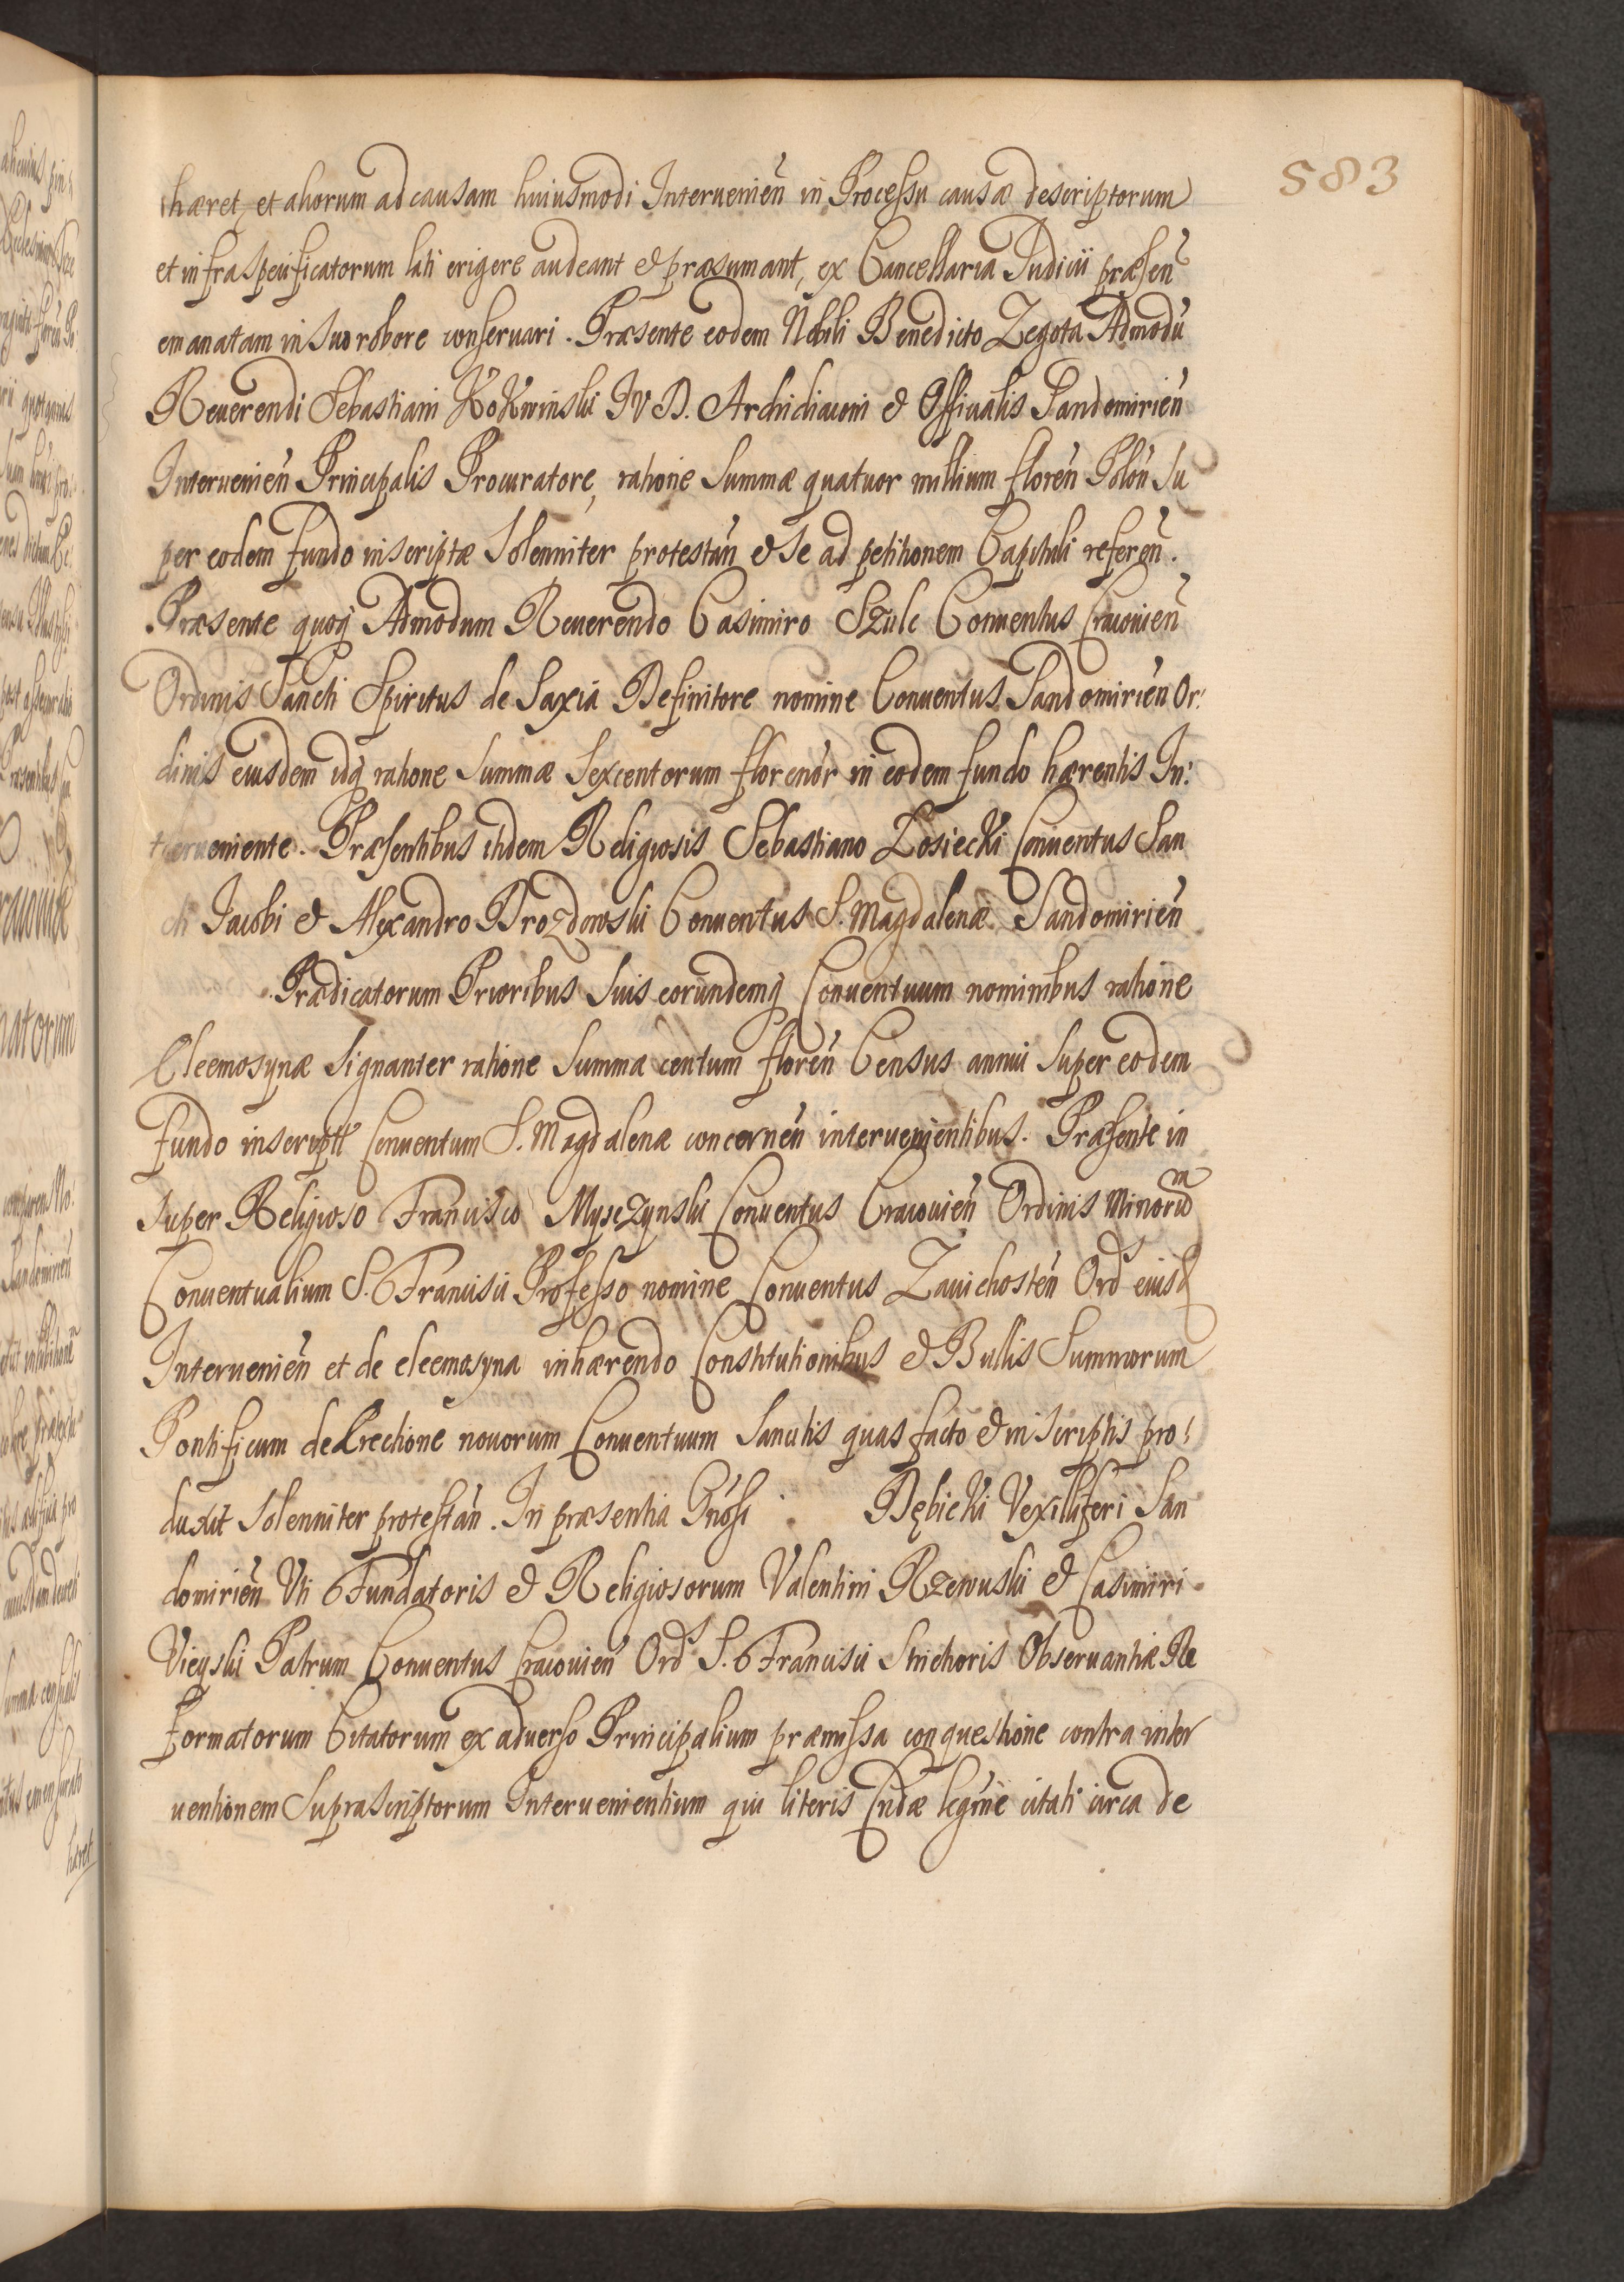 583
hæret, et aliorum ad causam huiusmodi Intervenien̄ in Processu causæ descriptorum
et infraspecificatorum lati erigere audeant & præsumant, ex Cancellaria Iudicii præsen̄
emanatam in suo robore conservari. Præsente eodem Nobili Benedicto Zegota Admodū
Reuerendi Sebastiani Kokwinski IVD. Archidiaconi & Officialis Sandomirien̄
Interuenien̄ Principalis Procuratore, ratione Summæ quatuor millium floren̄ Polon̄ Su
per eodem fundo inscriptæ Solenniter protestan̄ & se ad petitionem Capituli referen̄.
Præsente quoq̃ Admodum Reuerendo Casimiro Szulc Conuentus Cracouien̄
Ordinis Sancti Spiritus de Saxia Definitore nomine Conuentus Sandomirien̄ Or:
dinis eiusdem idq̃ ratione Summæ Sexcentorum florenor̄ in eodem fundo hærentis In:
terueniente. Præsentibus itidem Religiosis Sebastiano Łosiecki Conuentus San
cti Iacobi & Alexandro Drozdowski Conuentus S. Magdalenæ Sandomirien̄
Prædicatorum Prioribus Suis eorundemq̃ Conuentuum nominibus ratione
Eleemosynæ Signanter ratione Summæ centum floren̄ Census annui Super eodem
fundo inscriptt Conuentum S. Magdalenæ concernen̄ interuenientibus. Præsente in
super Religioso Francisco Myszczynski Conuentus Cracouien̄ Ordinis Minorum
Conuentualium S. Francisci Professo nomine Conuentus Zauichosten̄ Ord eiusd
Interuenien̄ et de eleemosyna inhærendo Constitutionibus & Bullis Summorum
Pontificum de Erectione nouorum Conuentuum Sancitis quas facto & in scriptis pro:
duxit Solenniter protestan̄. In præsentia Gnōsi Dębicki Vexilliferi San
domirien̄ Vti Fundatoris & Religiosorum Valentini Rzewuski & Casimiri
Vieyski Patrum Conuentus Cracouien̄ Ord S. Francisci Strictioris Obseruantiæ Re
formatorum Citatorum ex aduerso Principalium præmissa conquestione contra inter
uentionem Suprascriptorum Interuenientium qui literis Cndæ legme citati circa de